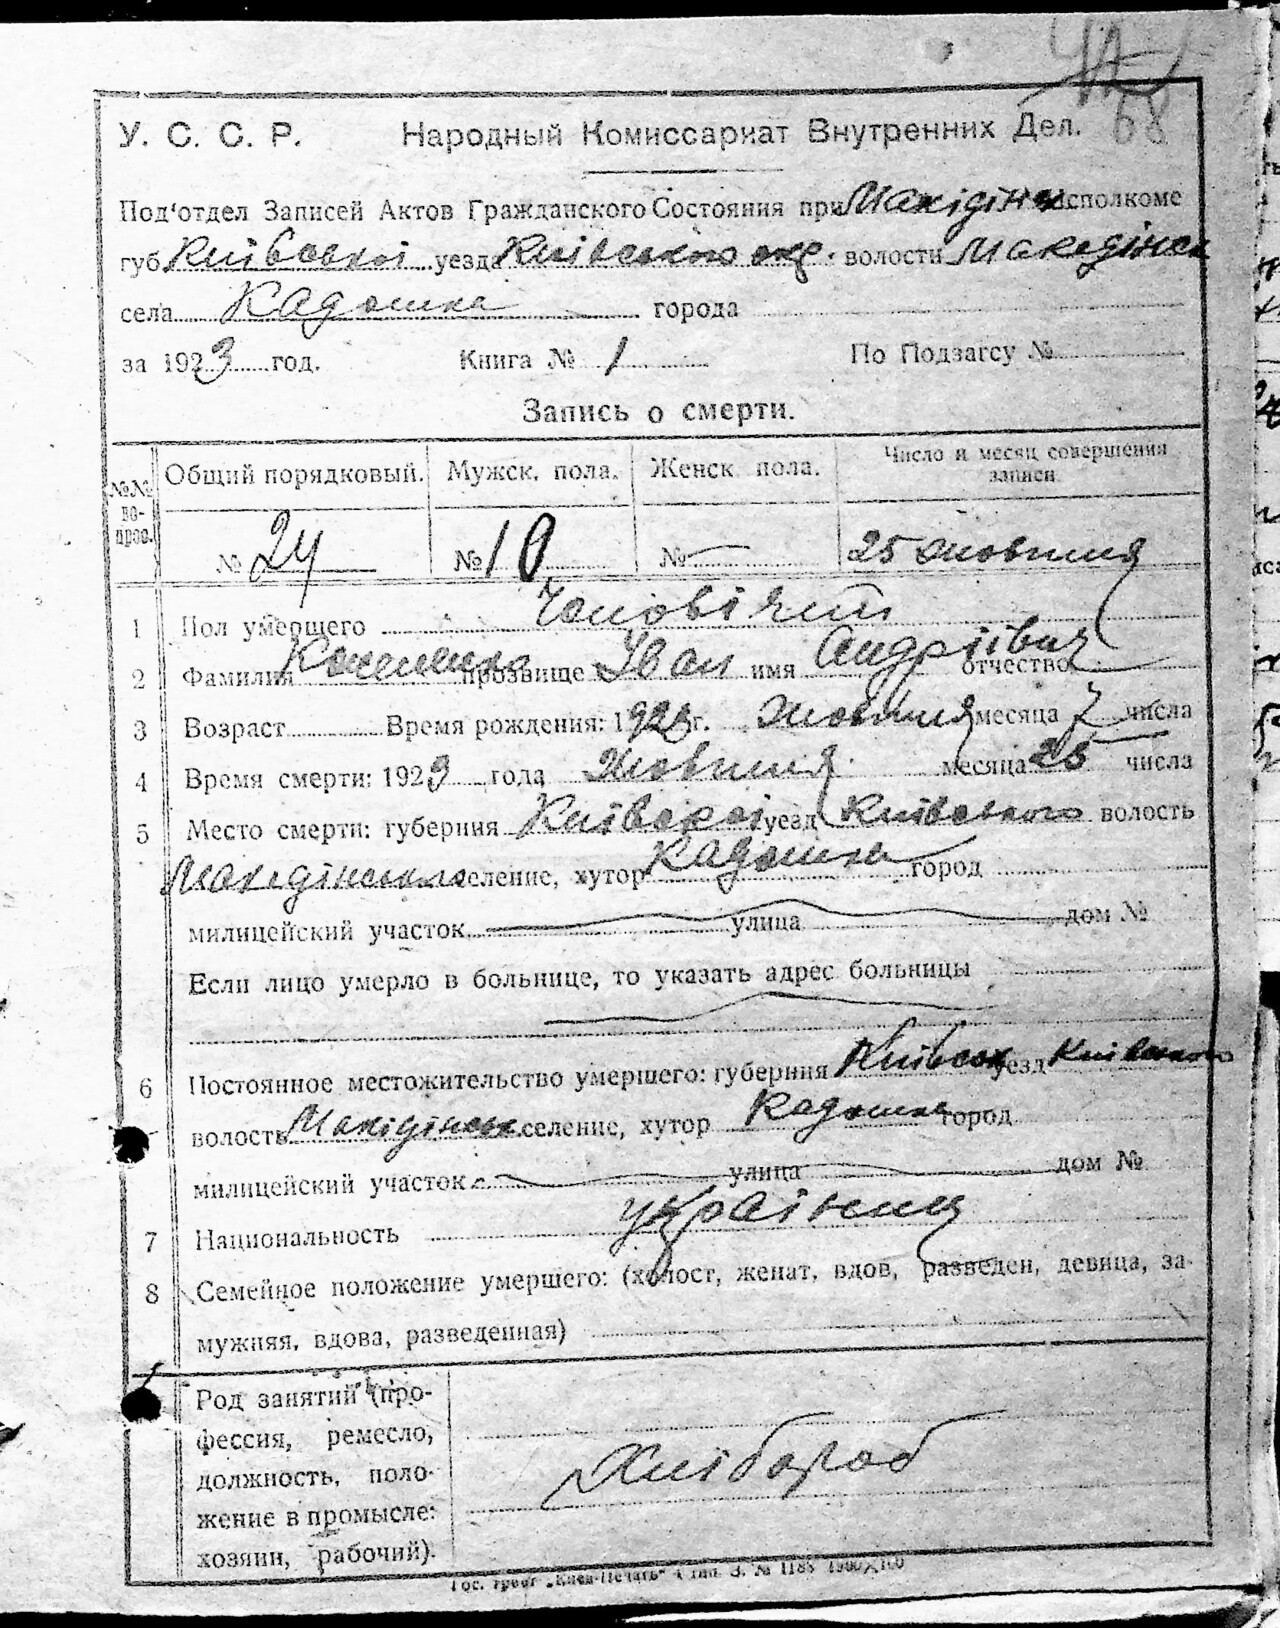 68
У. С. С. Р. Народный Комиссариат Внутренних Дел.
Под'отдел Записей Актов Гражданского Состояния при Македінськ исполкоме
губ. Київської уезда Київського окр. волости Македінськ
села Кадомка города
за 1923 год. Книга № 1 По Подзагсу №
Запись о смерти.
№№ вопрос. Общий порядковый. Мужск. пола. Женск. пола. Число и месяц совершения записи
№ 24 № 10 № 25 жовтня
1 Пол умершего Чоловічий
2 Фамилия прозвище Іван имя Андріївич отчество
3 Возраст Время рождения: 1923 г. жовтня месяца 7 числа
4 Время смерти: 1923 года жовтня месяца 25 числа
5 Место смерти: губерния Київської уезд Київського волость
Македінська селение, хутор Кадомка город
милицейский участок улица дом №
Если лицо умерло в больнице, то указать адрес больницы
6 Постоянное местожительство умершего: губерния Київськ уезд Київського
волость Македінськ селение, хутор Кадомка город
милицейский участок улица дом №
7 Национальность українец
8 Семейное положение умершего: (холост, женат, вдов, разведен, девица, за-
мужняя, вдова, разведенная)
Род занятий (про-
фессия, ремесло,
должность, поло-
жение в промысле:
хозяин, рабочий).
Хлібороб
Гос. трест „Киев-Печать“ 4 тип. З. № 1188 1900×100